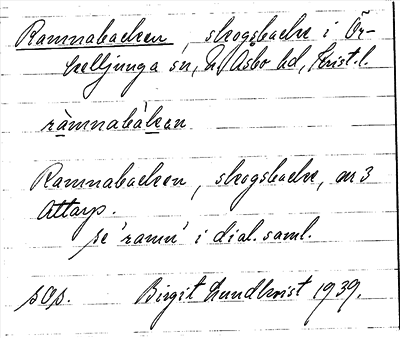 Ramnabacken, skogsbacke i Ör-
kelljunga sn, N. Åsbo hd, Krist. l.
ràmnabàkan
Ramnabacken, skogsbacke, nr 3
Attarp.
se 'ramn' i dial. saml.
sOp. Birgit Lundkvist 1939.